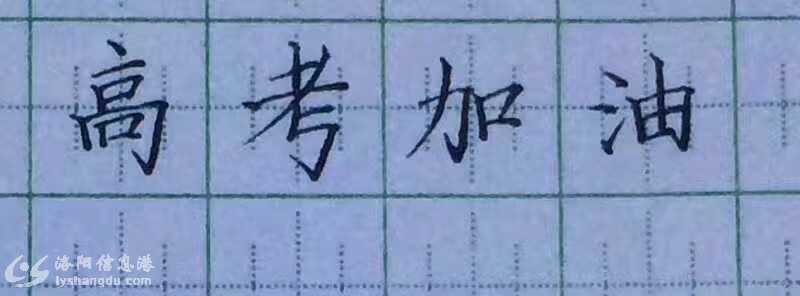 高考加油
洛阳信息港
lyshangdu.com